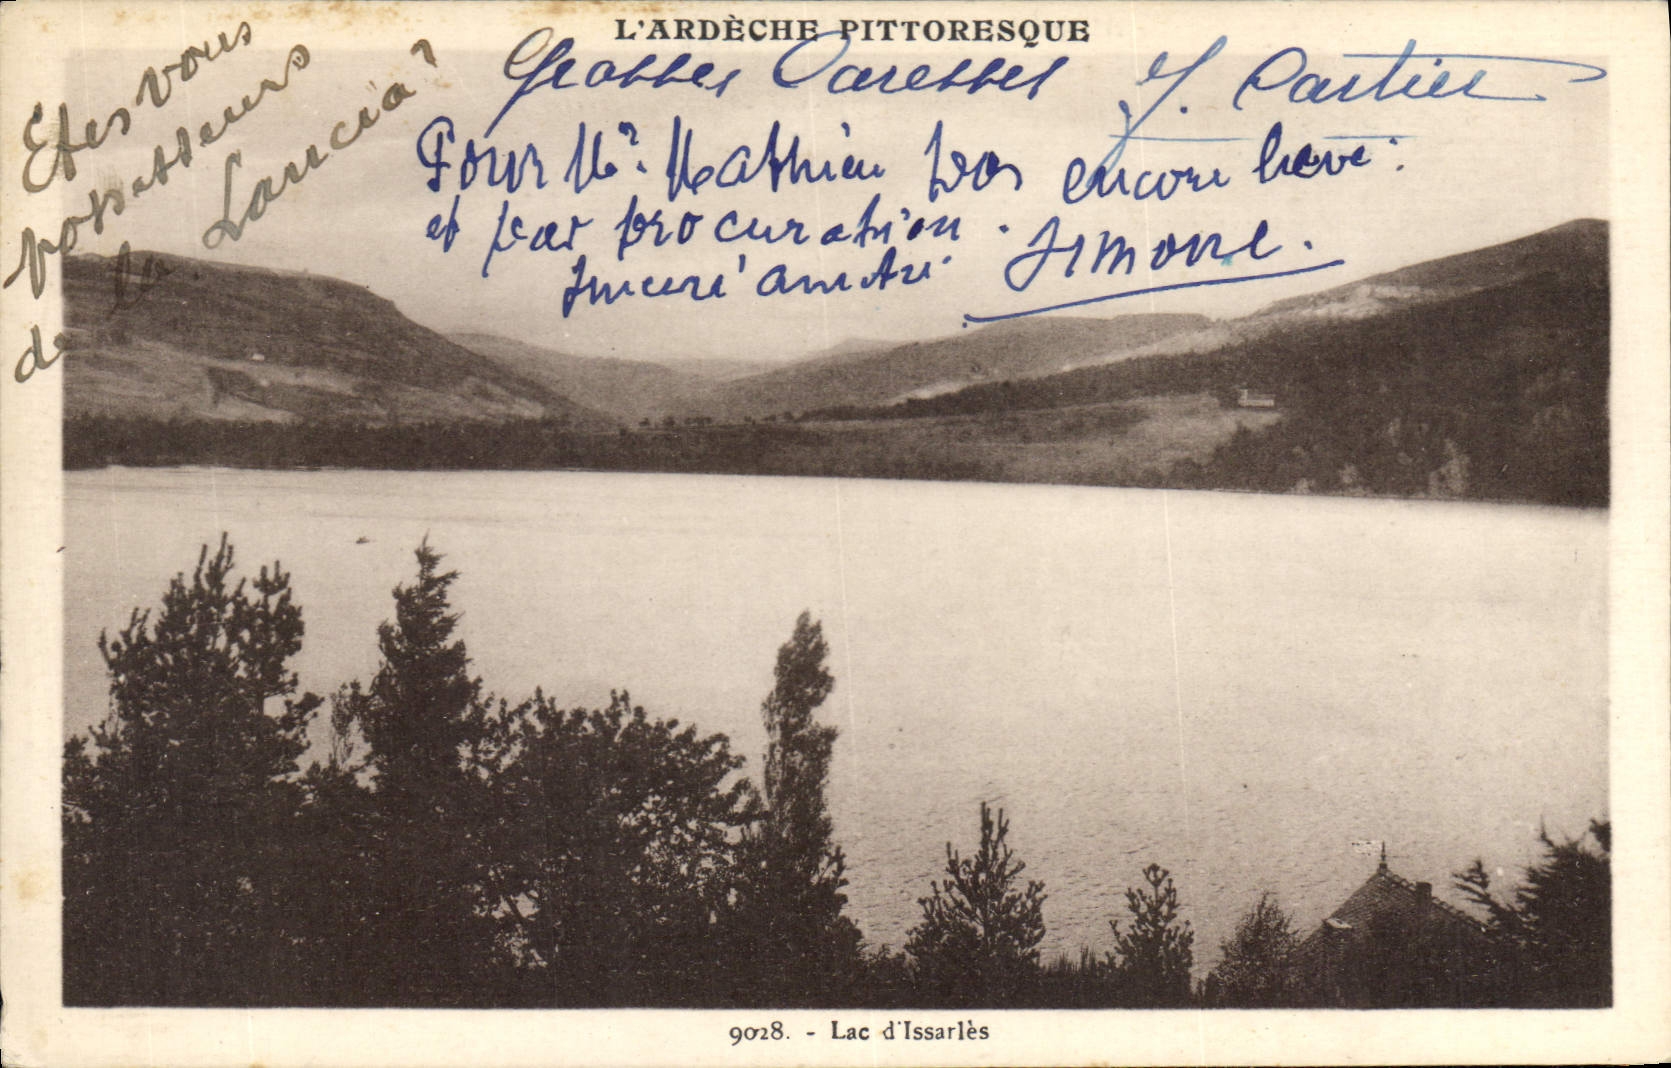 L'ARDÈCHE PITTORESQUE
Etes vous
possesseurs
de la Lancia?
Grosses Caresses J. Cartier
Pour Mr. Mathieu pas encore levé.
et par procuration.
Sincère amitié Simone.
9028. - Lac d'Issarlès